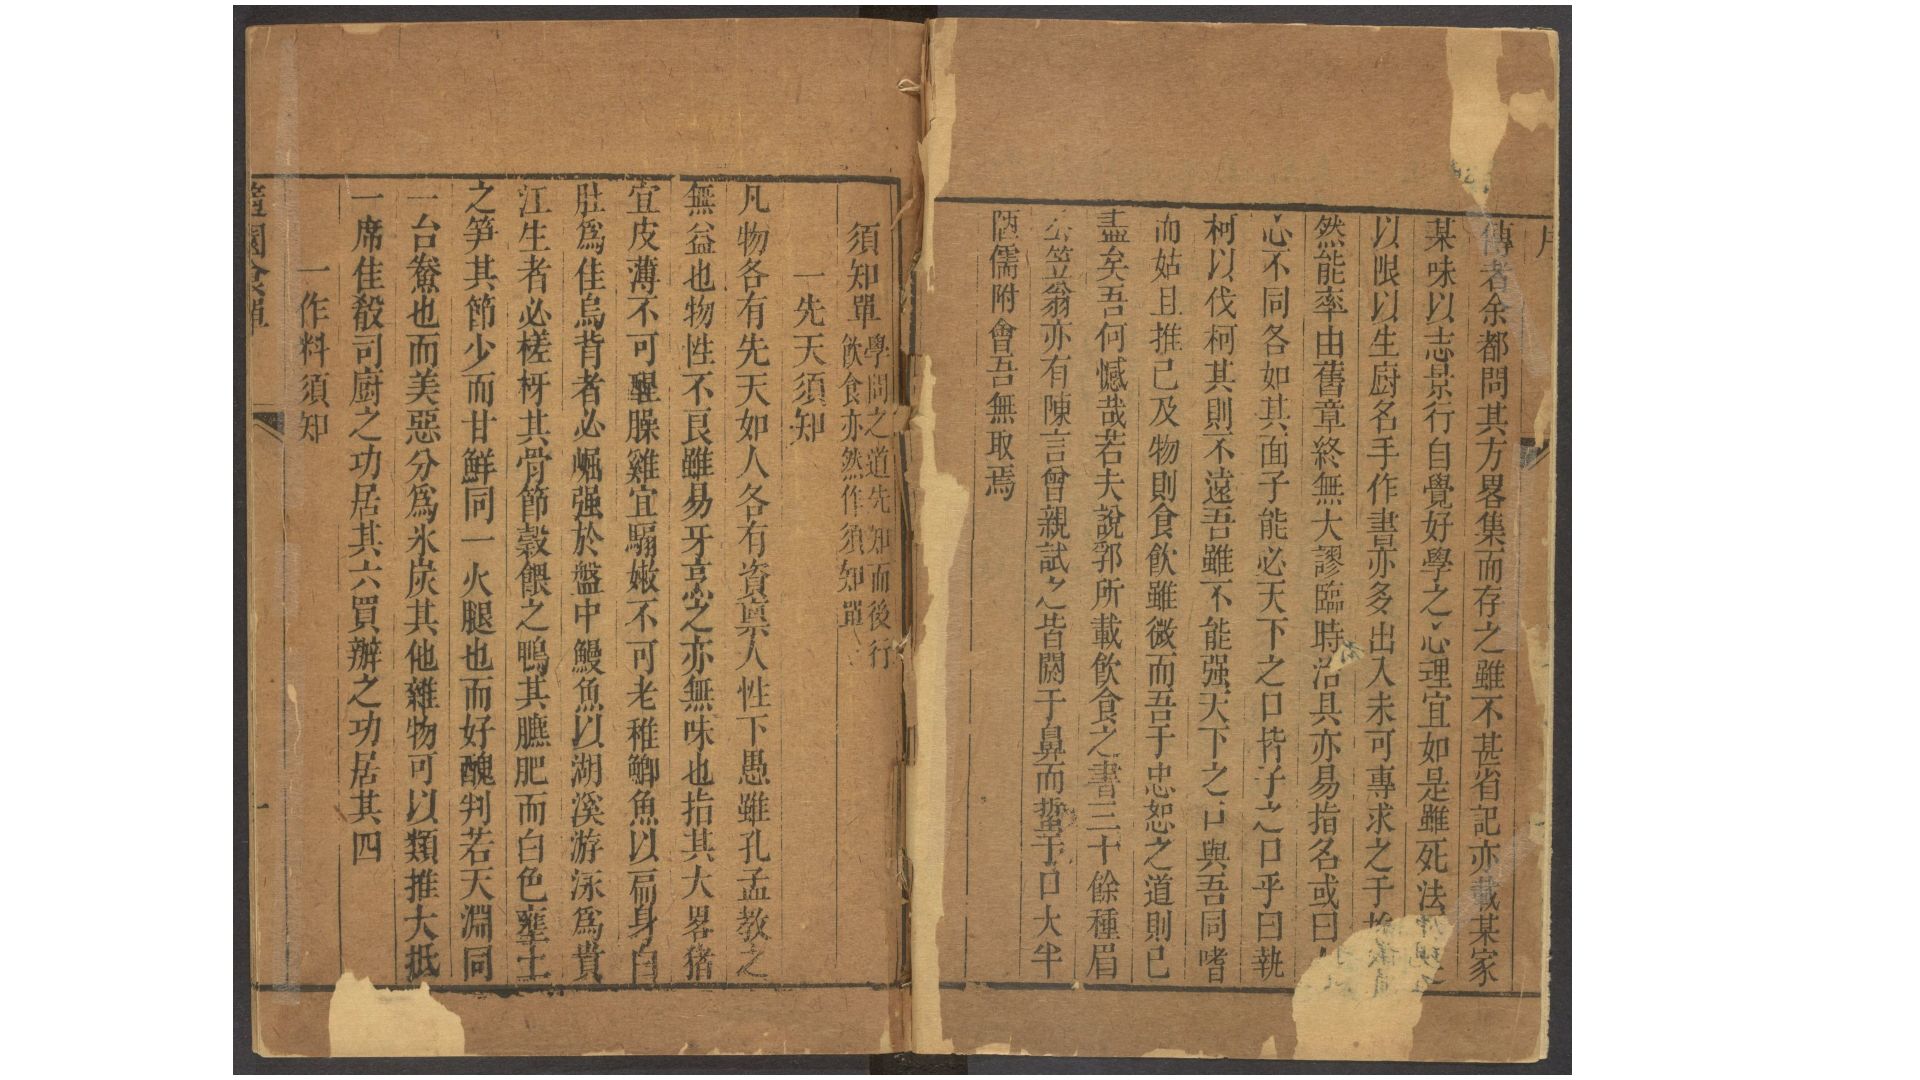 傳者余都問其方畧集而存之雖不甚省記亦載某家
某味以志景行自覺好學之心理宜如是雖死法
以限以生廚名手作書亦多出入未可專求之于
然能率由舊章終無大謬臨時治具亦易指名或曰人
心不同各如其面子能必天下之口皆子之口乎曰執
柯以伐柯其則不遠吾雖不能强天下之口與吾同嗜
而姑且推己及物則食飲雖微而吾于忠恕之道則已
盡矣吾何憾哉若夫說郛所載飲食之書三十餘種眉
公笠翁亦有陳言曾親試之皆閼于鼻而蜇于口大半
陋儒附會吾無取焉
須知單 學問之道先知而後行
飲食亦然作須知單
一先天須知
凡物各有先天如人各有資稟人性下愚雖孔孟教之
無益也物性不良雖易牙烹之亦無味也指其大畧猪
宜皮薄不可腥臊雞宜騸嫩不可老稚鯽魚以扁身白
肚爲佳烏背者必崛强於盤中鰻魚以湖溪游泳爲貴
江生者必槎枒其骨節穀餵之鴨其膘肥而白色壅土
之笋其節少而甘鮮同一火腿也而好醜判若天淵同
一台鯗也而美惡分爲氷炭其他雜物可以類推大抵
一席佳殽司廚之功居其六買辦之功居其四
一作料須知
隨園食單
一